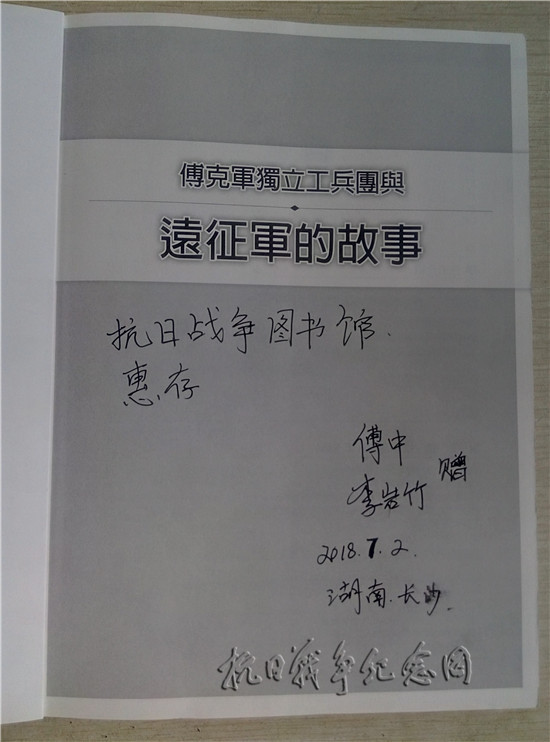 傅克軍獨立工兵團與
遠征軍的故事
抗日战争图书馆.
惠存
傅中
李岩竹 赠
2018.7.2.
湖南.长沙.
抗日戰争纪念网